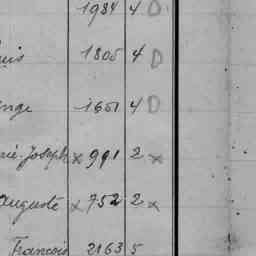 1984 4 D
uis 1805 4 D
ange 1651 4 D
rie-Joseph x 991 2 x
Auguste x 752 2 x
Francois 2163 5